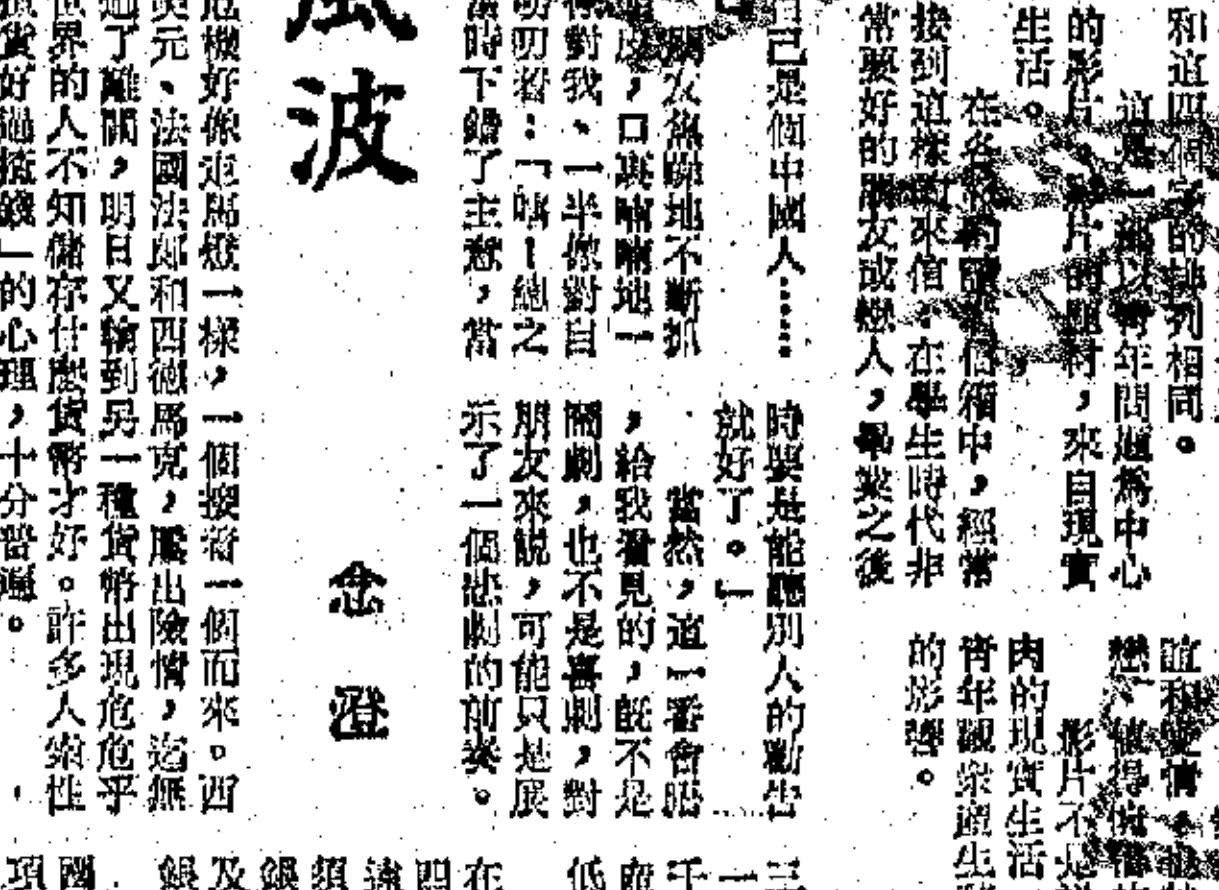 和這四個字的排列相同。
這是一部以青年問題為中心
的影片。影片的題材，來自現實
生活。
在各報的讀者信箱中，經常
接到這樣的來信：在學生時代非
常要好的朋友或戀人，畢業之後
誼和愛情
戀
影片不是
肉的現實生活
青年觀衆產生
的影響。
自己是個中國人……
朋友無聊地不斷抓
，口裏喃喃地一
對我、一半像對自
叨着：「唔！總之
當時下錯了主意，當
時要是能聽別人的勸告
就好了。」
當然，這一番會晤
，給我看見的，旣不是
鬧劇，也不是喜劇，對
朋友來說，可能只是展
示了一個悲劇的前奏。
風波
念澄
危機好像走馬燈一樣，一個接着一個而來。西
美元、法國法郎和西德馬克，屢出險情，迄無
過了難關，明日又輪到另一種貨幣出現危危乎
世界的人不知儲存什麽貨幣才好。許多人索性
貨好過揸錢」的心理，十分普遍。
三
一
千
低
在
四
遠
須
銀
及
銀
國
項